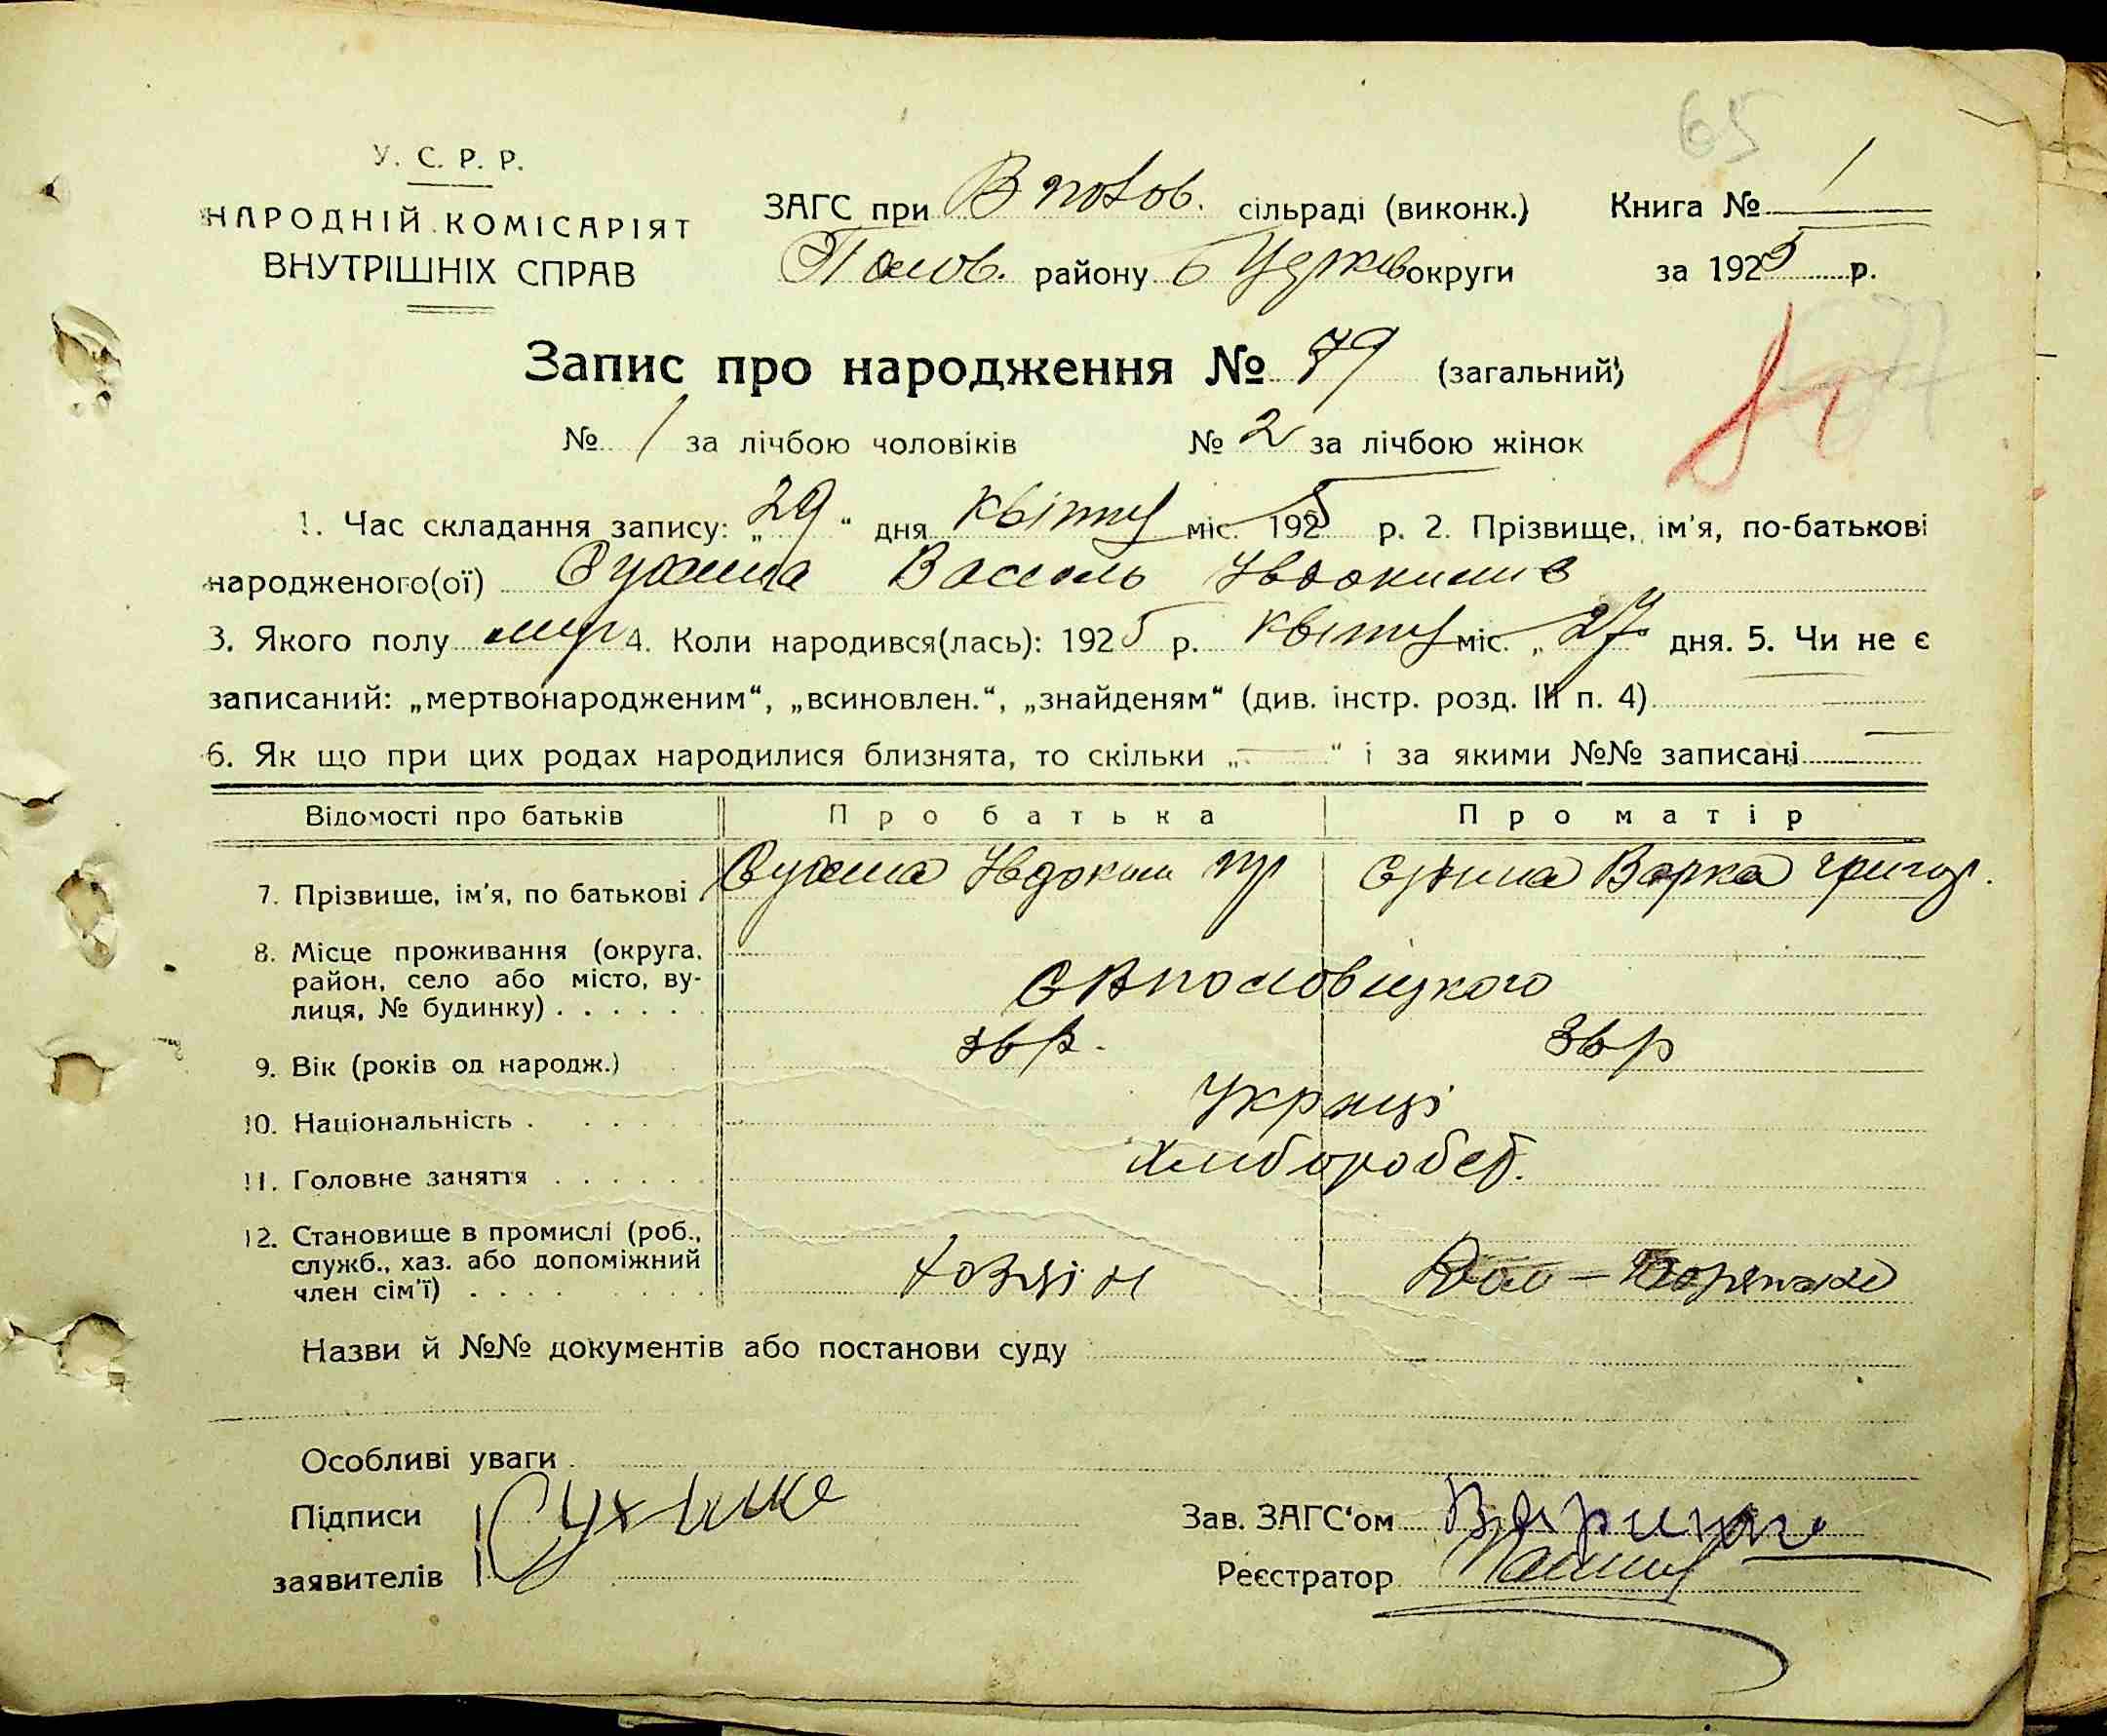 65
У. С. Р. Р.
НАРОДНІЙ КОМІСАРІЯТ
ВНУТРІШНІХ СПРАВ
ЗАГС при В полов. сільраді (виконк.) Книга № 1
Полов. району Б Церків округи за 1925 р.
Запис про народження № 79 (загальний)
№ 1 за лічбою чоловіків № 2 за лічбою жінок
1. Час складання запису: „29“ дня квітня міс. 1925 р. 2. Прізвище, ім'я, по-батькові
народженого(ої) Сухина Василь Ивдокимив
3. Якого полу муж 4. Коли народився(лась): 1925 р. квітня міс. „27 дня. 5. Чи не є
записаний: „мертвонародженим“, „всиновлен.“, „знайденям“ (див. інстр. розд. III п. 4)
6. Як що при цих родах народилися близнята, то скільки „—“ і за якими №№ записані —
Відомості про батьків Про батька Про матір
7. Прізвище, ім'я, по батькові Сухина Ивдоким Сухина Варка Григор.
8. Місце проживання (округа,
район, село або місто, ву-
лиця, № будинку)
9. Вік (років од народж.)
10. Національність Украці
11. Головне заняття Хлибороб
12. Становище в промислі (роб.,
служб., хаз. або допоміжний
член сім'ї)
Назви й №№ документів або постанови суду
Особливі уваги
Підписи Сухина Зав. ЗАГС'ом
заявителів Реєстратор